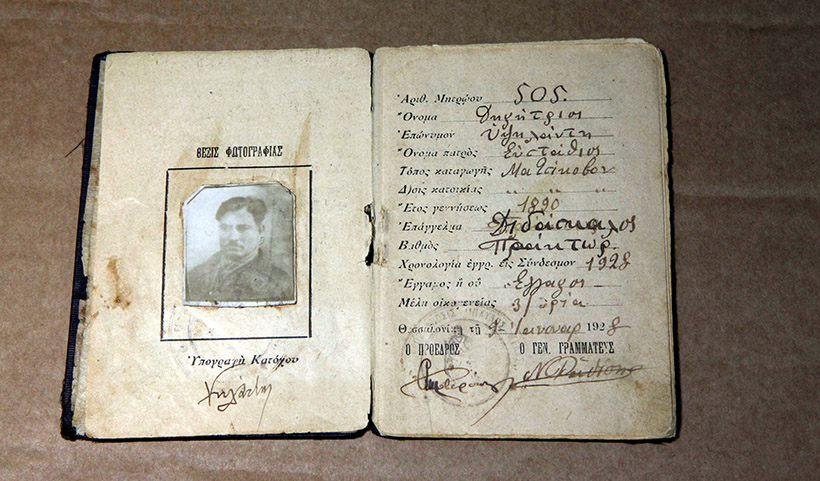 ΘΕΣΙΣ ΦΩΤΟΓΡΑΦΙΑΣ
Ὑπογραφὴ Κατόχου
Ἀριθ. Μητρῴου 505.
Ὄνομα Δημήτριος
Ἐπώνυμον Ὑψηλάντη
Ὄνομα πατρὸς Εὐστάθιος
Τόπος καταγωγῆς
Δ)σις κατοικίας " " "
Ἔτος γεννήσεως 1890
Ἐπάγγελμα Διδάσκαλος
Βαθμὸς
Χρονολογία ἐγγρ. εἰς Σύνδεσμον 1928
Ἔγγαμος ἢ οὔ Ἔγγαμος
Μέλη οἰκογενείας 3/τρία
Θεσσαλονίκη τῇ Ἰανουαρ 1928
Ο ΠΡΟΕΔΡΟΣ Ο ΓΕΝ. ΓΡΑΜΜΑΤΕΥΣ